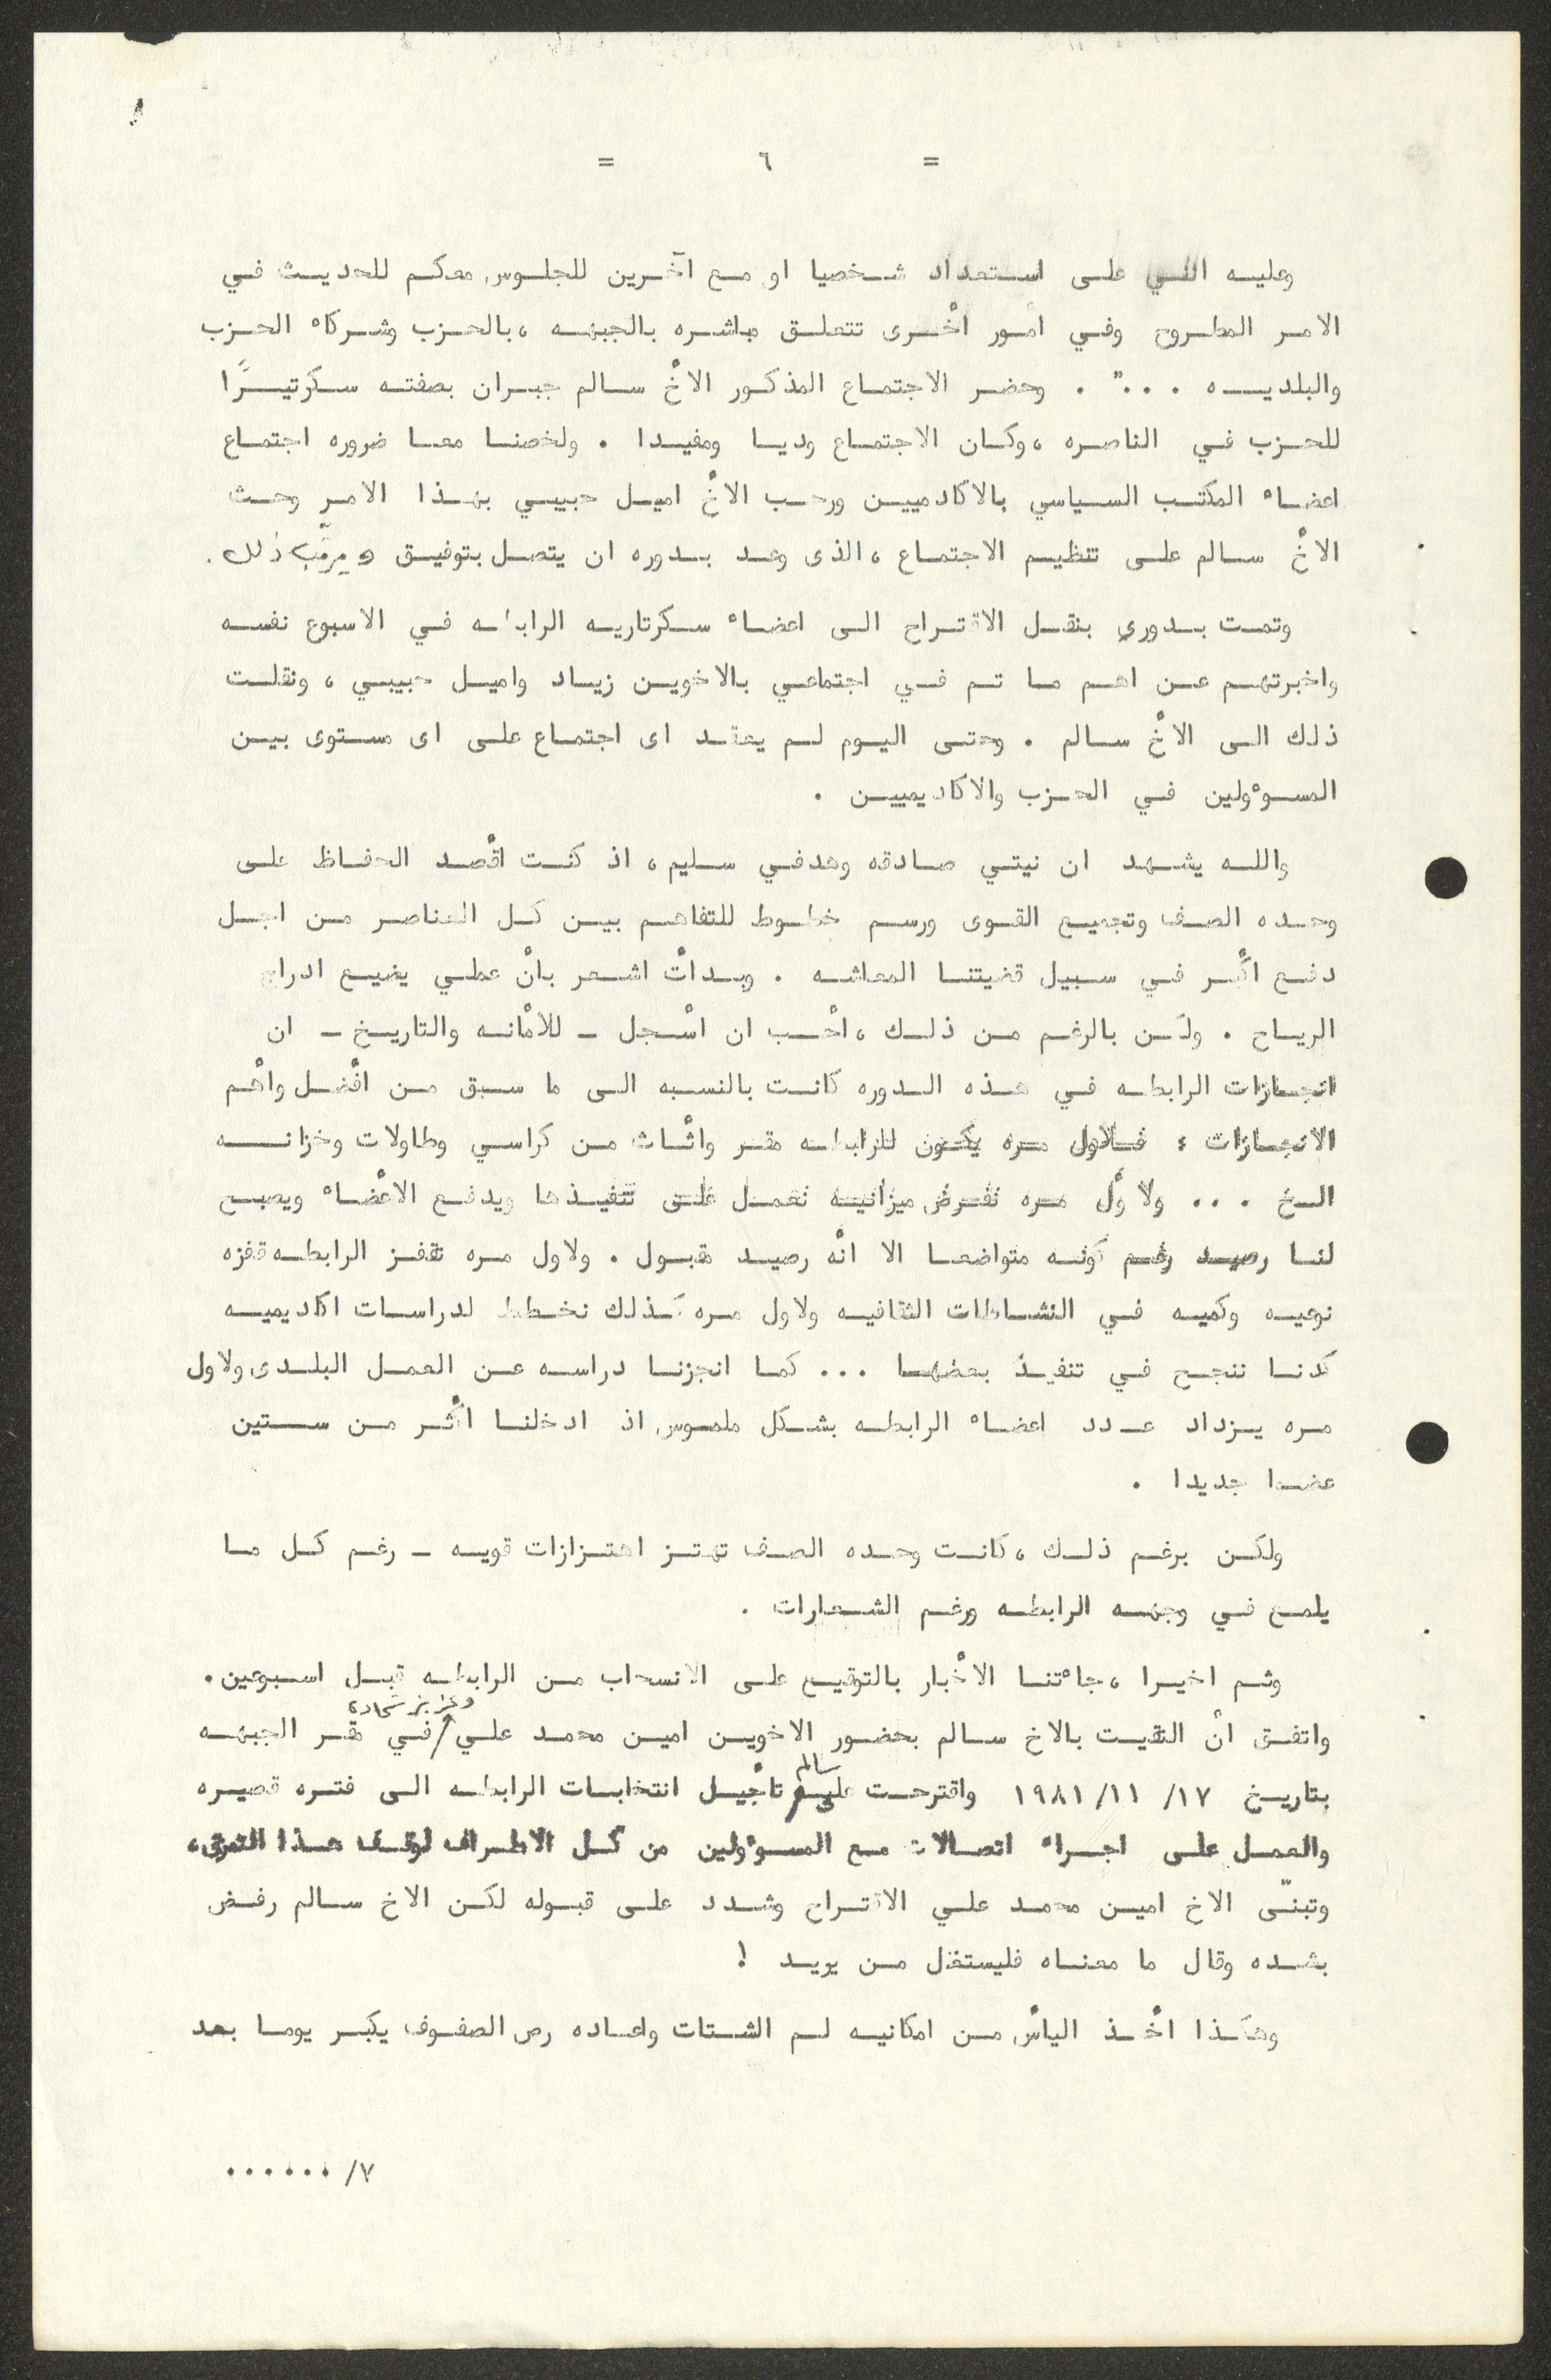 = ٦ =
وعليه انني على استعداد شخصيا او مع آخرين للجلوس معكم للحديث في
الامر المطروح وفي أمور أخرى تتعلق مباشره بالجبهه ، بالحزب وشركاء الحزب
والبلديه ... " . وحضر الاجتماع المذكور الأخ سالم جبران بصفته سكرتيرًا
للحزب في الناصره ، وكان الاجتماع وديا ومفيدا . ولخصنا معا ضروره اجتماع
اعضاء المكتب السياسي بالاكادميين ورحب الأخ اميل حبيبي بهذا الامر وحث
الأخ سالم على تنظيم الاجتماع ، الذى وعد بدوره ان يتصل بتوفيق ويرتّب ذلك .
وقمت بدوري بنقل الاقتراح الى اعضاء سكرتاريه الرابطه في الاسبوع نفسه
واخبرتهم عن اهم ما تم في اجتماعي بالاخوين زياد واميل حبيبي ، ونقلت
ذلك الى الأخ سالم . وحتى اليوم لم يعقد اى اجتماع على اى مستوى بين
المسوءولين في الحزب والاكاديميين .
والله يشهد ان نيتي صادقه وهدفي سليم ، اذ كنت أقصد الحفاظ على
وحده الصف وتجميع القوى ورسم خطوط للتفاهم بين كل العناصر من اجل
دفع أكبر في سبيل قضيتنا المعاشه . وبدأت اشعر بأن عملي يضيع ادراج
الرياح . ولكن بالرغم من ذلك ، أحب ان أسجل - للأمانه والتاريخ - ان
انجازات الرابطه في هذه الدوره كانت بالنسبه الى ما سبق من أفضل وأهم
الانجازات : فلاول مره يكون للرابطه مقر وأثاث من كراسي وطاولات وخزانه
الخ ... ولأول مره نفرض ميزانيه نعمل على تنفيذها ويدفع الأعضاء ويصبح
لنا رصيد رغم كونه متواضعا الا أنه رصيد مقبول . ولاول مره تقفز الرابطه قفزه
نوعيه وكميه في النشاطات الثقافيه ولاول مره كذلك نخطط لدراسات اكاديميه
كدنا ننجح في تنفيذ بعضها ... كما انجزنا دراسه عن العمل البلدى ولاول
مره يزداد عدد اعضاء الرابطه بشكل ملموس اذ ادخلنا أكثر من ستين
عضوا جديدا .
ولكن برغم ذلك ، كانت وحده الصف تهتز اهتزازات قويه - رغم كل ما
يلمع في وجهه الرابطه ورغم الشعارات .
وثم اخيرا ، جاءتنا الأخبار بالتوقيع على الانسحاب من الرابطه قبل اسبوعين .
واتفق أن التقيت بالاخ سالم بحضور الاخوين امين محمد علي وعزيز شحادة في مقر الجبهه
بتاريخ ١٧/ ١١/ ١٩٨١ واقترحت على سالم تأجيل انتخابات الرابطه الى فتره قصيره
والعمل على اجراء اتصالات مع المسوءولين من كل الاطراف لوقف هذا التمزق ،
وتبنّى الاخ امين محمد علي الاقتراح وشدد على قبوله لكن الاخ سالم رفض
بشده وقال ما معناه فليستقل من يريد !
وهكذا أخذ اليأس من امكانيه لم الشتات واعاده رص الصفوف يكبر يوما بعد
٧/ ......